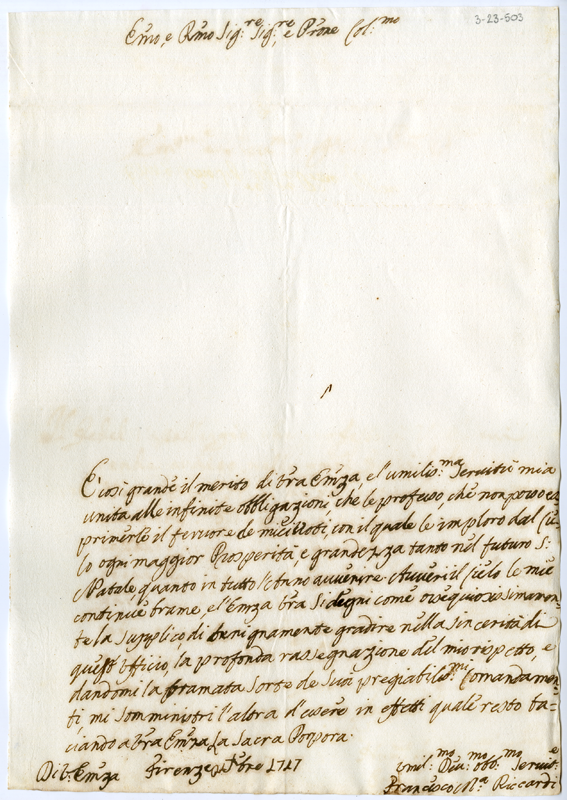 3-23-503
Emo, e Rmo Sig.re Sig.re, e Prone Col.mo
E' così grande il merito di Vra Emza, e l'umiliss.ma servitù mia
unita alle infinite obbligazioni, che le professo, che non posso es
primerle il fervore de miei Voti, con il quale le imploro dal Cie
lo ogni maggior Prosperità, e grandezza tanto nel futuro S:
Natale quanto in tutto l'Anno avvenire. Avveri il Cielo le mie
continue brame, e l'Emza Vra si degni come ossequiosamen
te la supplico, di benignamente gradire nella sincerità di
questo Uffizio, la profonda rassegnazione del mio rispetto, e
dandomi la bramata sorte de suoi pregiabiliss.mi Comandamen
ti, mi somministri l'alora d'essere in effetti quale resto ba
ciando a Vra Emza La Sacra Porpora.
Di V. Emza Firenze Xbre 1717
Umil.mo Dev.mo obb.mo Servit.e
Francesco M.a Riccardi